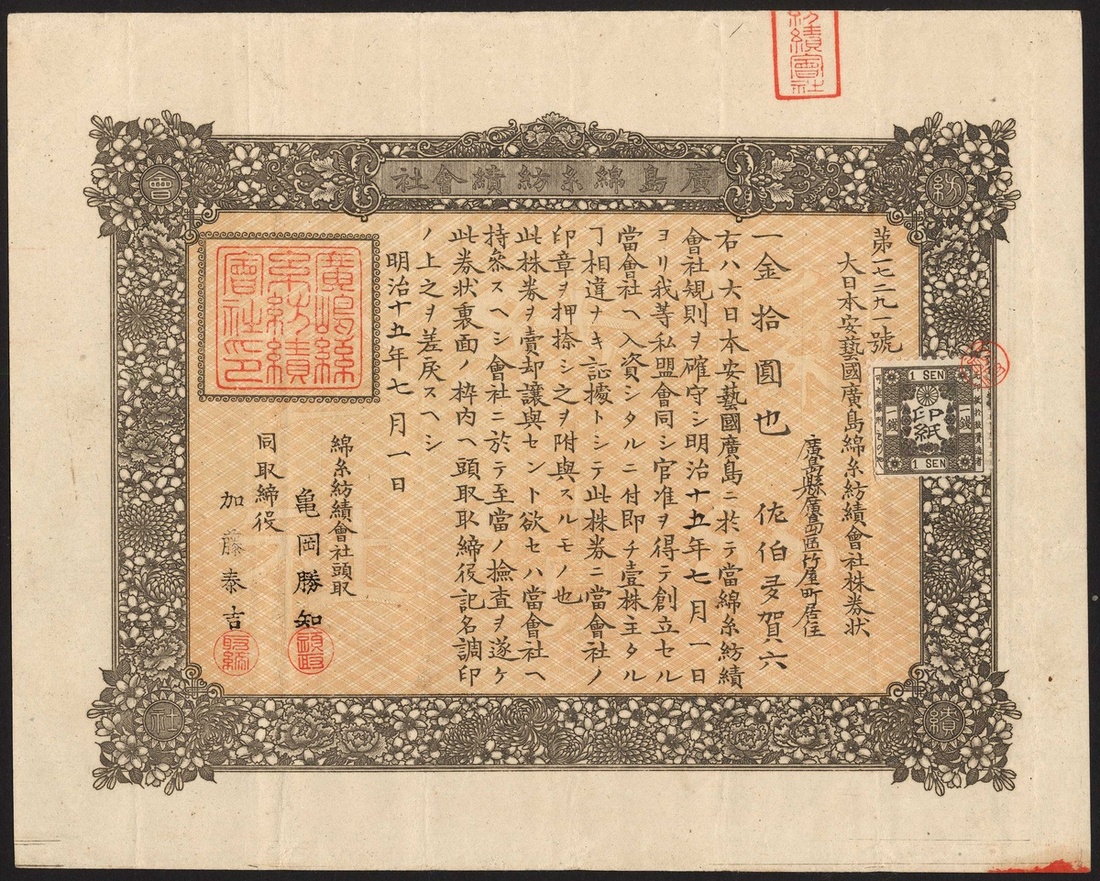 紡績會社
廣島綿糸紡績會社
紡
績
會
社
第一七二九一號
大日本安藝國廣島綿糸紡績會社株券状
1 SEN
印紙
一錢
一錢
1 SEN
廣島縣廣島區竹屋町居住
一金拾圓也 佐伯多賀六
右ハ大日本安藝國廣島ニ於テ當綿糸紡績
會社規則ヲ確守シ明治十五年七月一日
ヨリ我等私盟會同シ官准ヲ得テ創立セル
當會社ヘ入資シタルニ付即チ壹株主タル
丁相違ナキ証據トシテ此株券ニ當會社ノ
印章ヲ押捺シ之ヲ附與スルモノ也
此株券ヲ賣却讓與セント欲セハ當會社ヘ
持參スヘシ會社ニ於テ至當ノ撿査ヲ遂ケ
此券状裏面ノ枠内ヘ頭取取締役記名調印
ノ上之ヲ差戻スヘシ
明治十五年七月一日
廣嶋綿
糸紡績
會社印
綿糸紡績會社頭取
亀岡勝知
同取締役
加藤泰吉